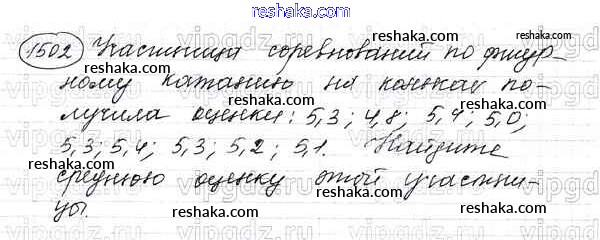 reshaka.com
1502 Участница соревнований по фигур-
reshaka.com reshaka.com
ному катанию на коньках по-
лучила оценки: 5,3; 4,8; 5,4; 5,0;
reshaka.com reshaka.com
5,3; 5,4; 5,3; 5,2; 5,1. Найдите
reshaka.com
среднюю оценку этой участни-
reshaka.com
цы.
reshaka.com